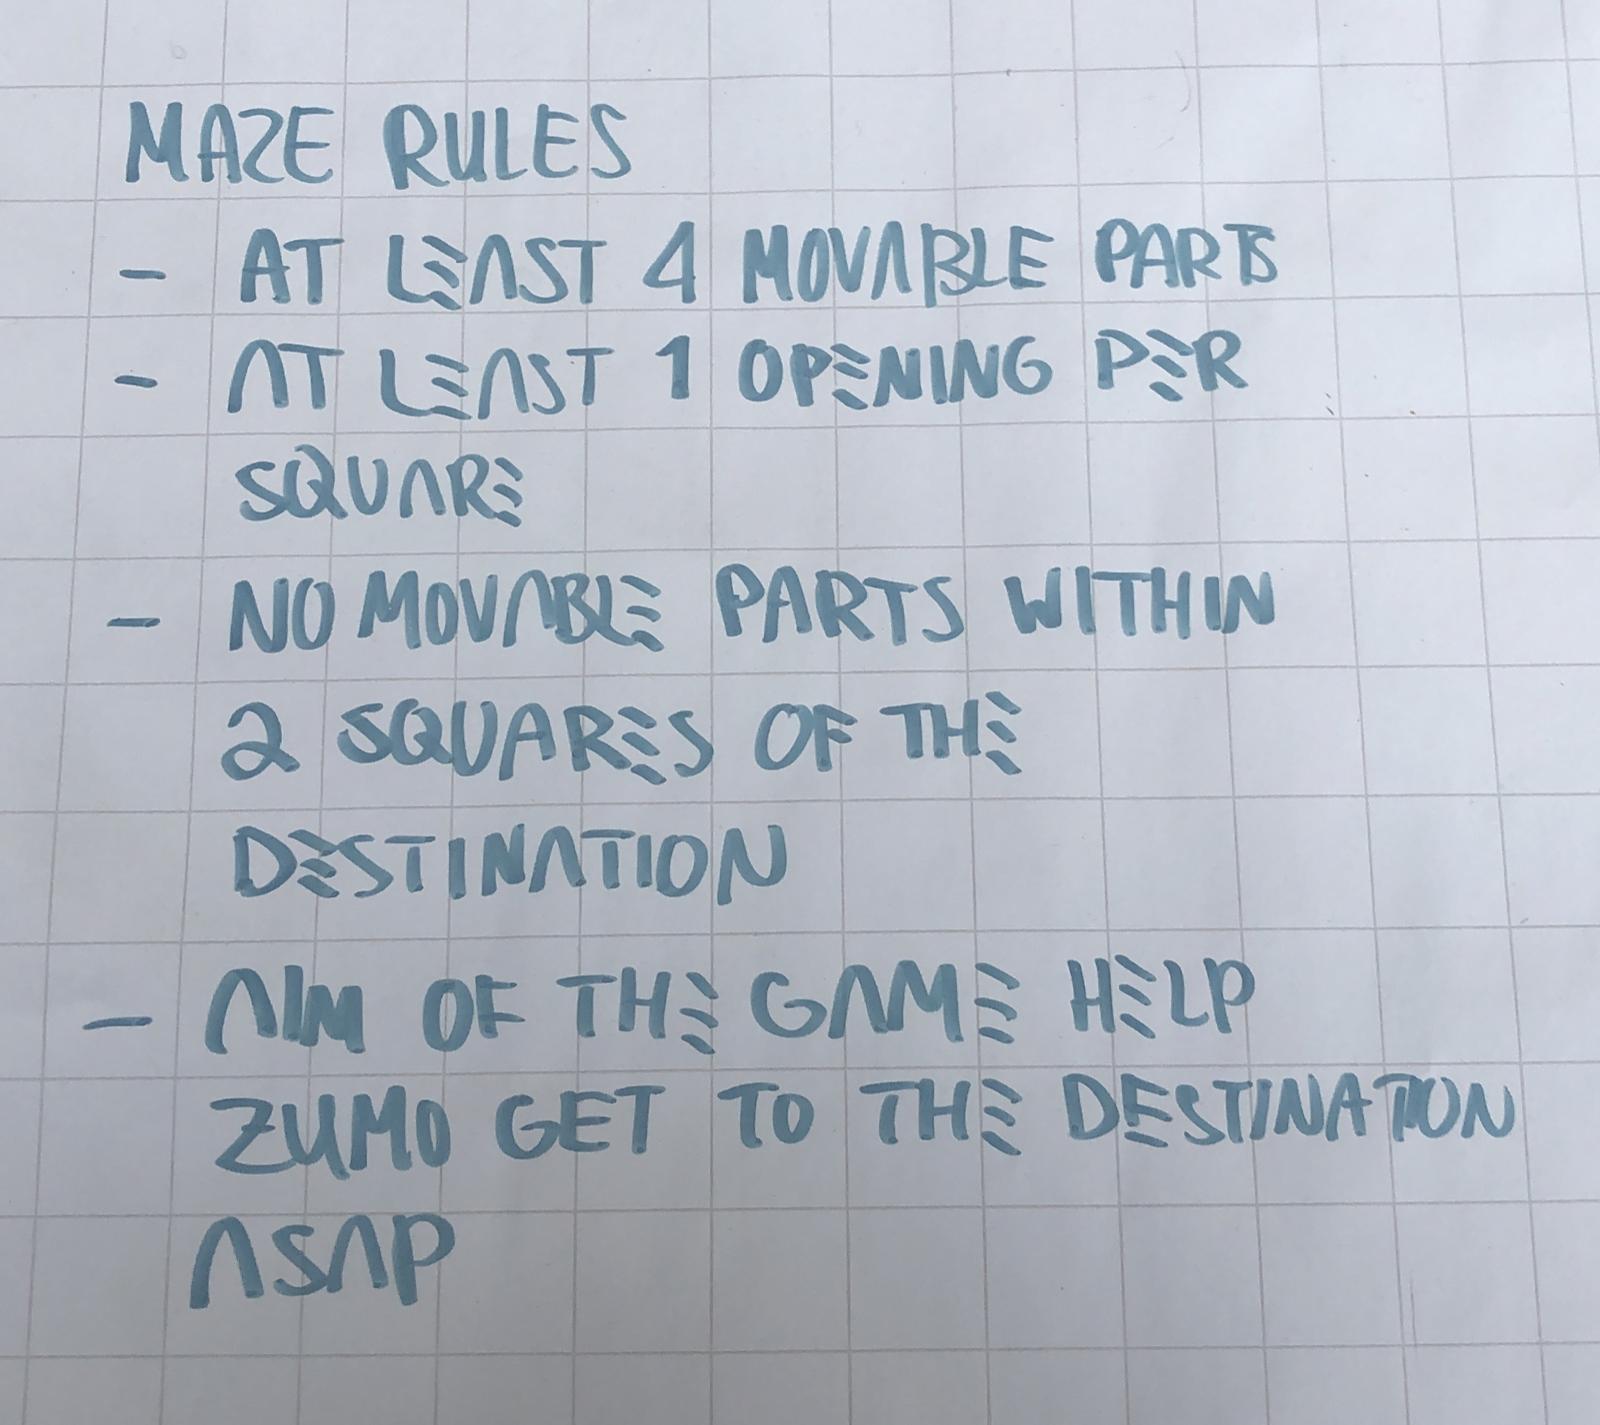 MAZE RULES
- AT LEAST 4 MOVABLE PARTS
- AT LEAST 1 OPENING PER
SQUARE
- NO MOVABLE PARTS WITHIN
2 SQUARES OF THE
DESTINATION
- AIM OF THE GAME HELP
ZUMO GET TO THE DESTINATION
ASAP